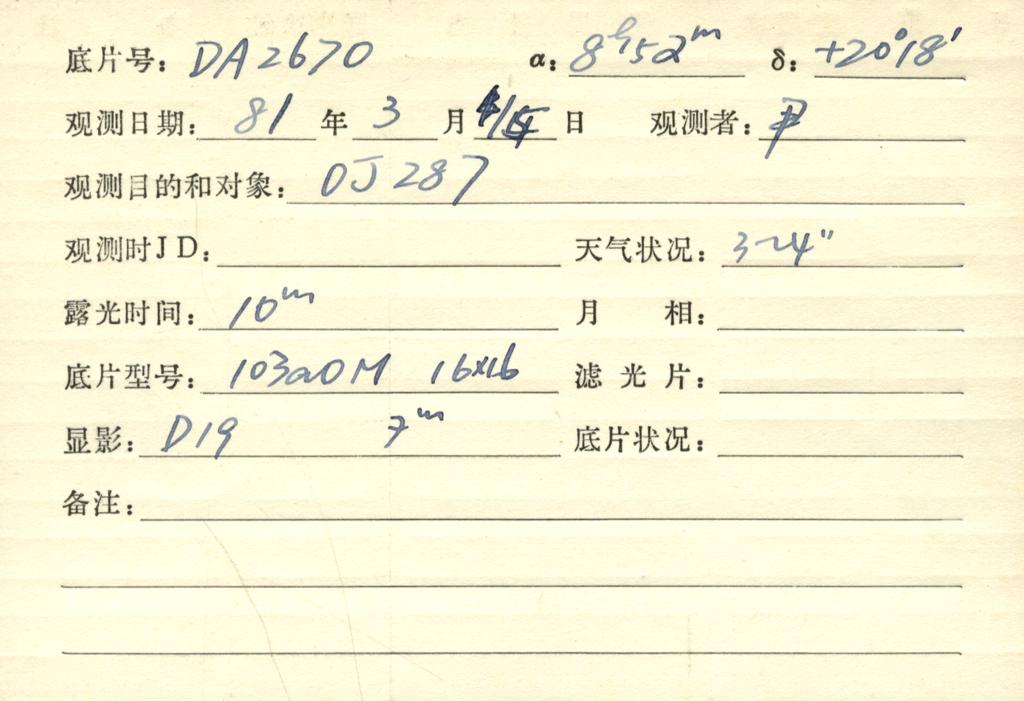 底片号: DA2670 α: 8h52m δ: +20°18′
观测日期: 81 年 3 月 4/5 日 观测者: 尹
观测目的和对象: OJ 287
观测时JD: 天气状况: 3~4"
露光时间: 10m 月 相:
底片型号: 103aOM 16×16 滤光片:
显影: D19 7m 底片状况:
备注: